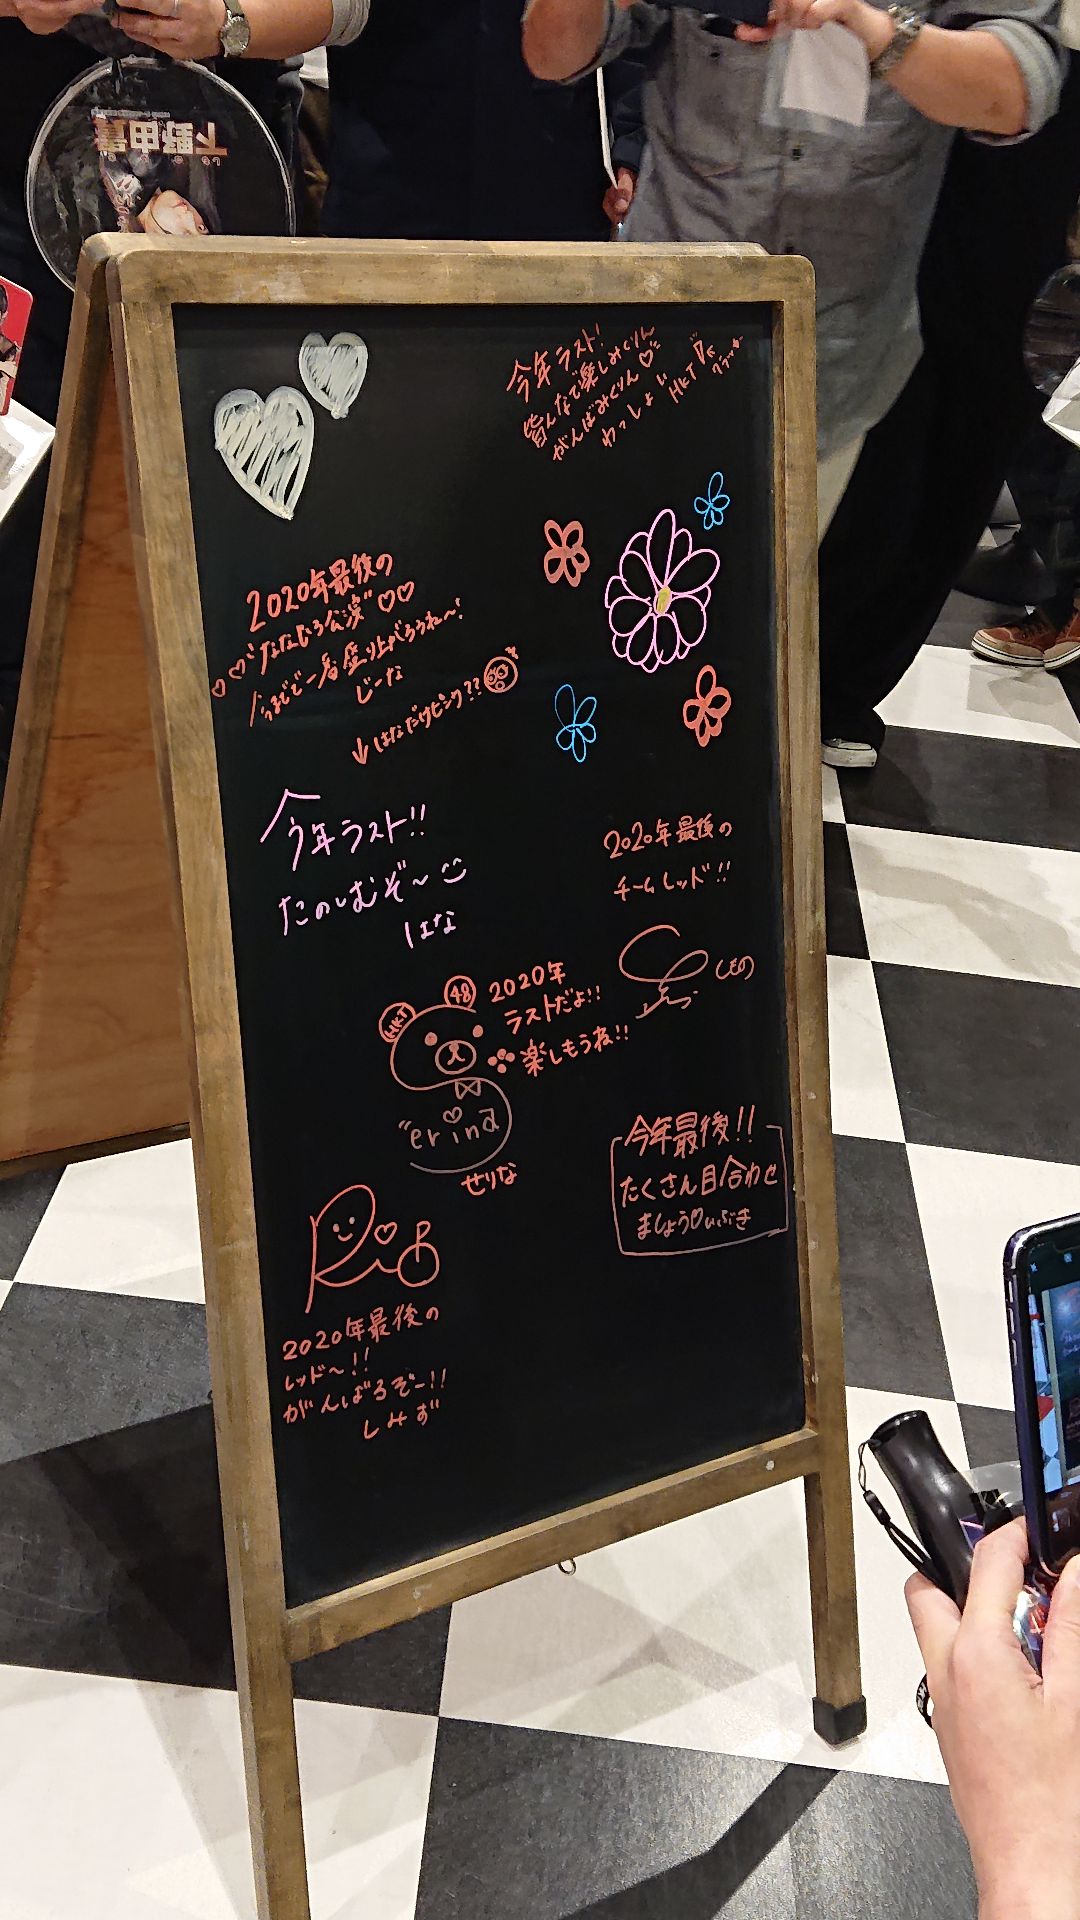 下野由貴
今年ラスト!
皆んなで楽しみくりん
がんばみくりん♡
わっしょい
HKT
2020年最後の
♡♡"なないろ公演"♡♡
今までで一番盛り上がろうね〜!
じーな
↓はなだけピンク??
今年ラスト!!
たのしむぞ〜
はな
2020年最後の
チームレッド!!
しもの
HKT
48
2020年
ラストだよ!!
楽しもうね!!
"erina
せりな
今年最後!!
たくさん目合わせ
ましょう♡いぶき
2020年最後の
レッド〜!!
がんばるぞー!!
しみず